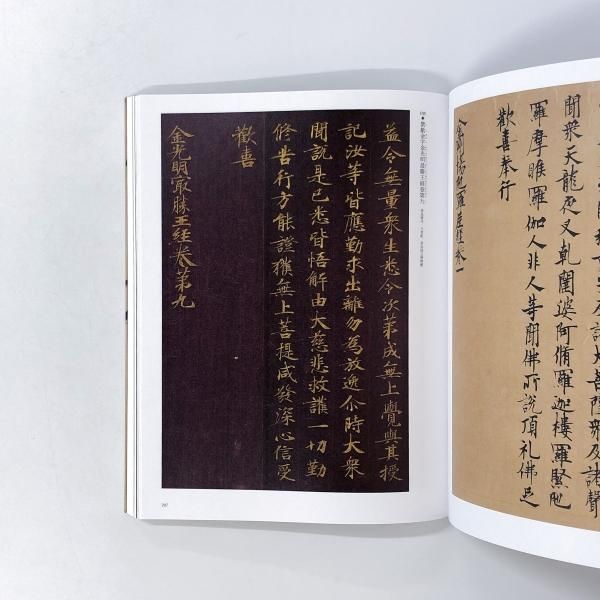 及諸大菩薩衆及諸聲
聞衆天龍夜叉乾闥婆阿脩羅迦樓羅緊那
羅摩睺羅伽人非人等聞佛所說頂礼佛足
歡喜奉行
金剛場陀羅尼經卷一
紫紙金字金光明最勝王経巻第九
益令無量衆生悉令次第成無上覺與其授
記汝等皆應勤求出離勿為放逸尒時大衆
聞說是已悉皆悟解由大慈悲救護一切勤
修苦行方能證獲無上菩提咸發深心信受
歡喜
金光明冣勝王經卷第九
197